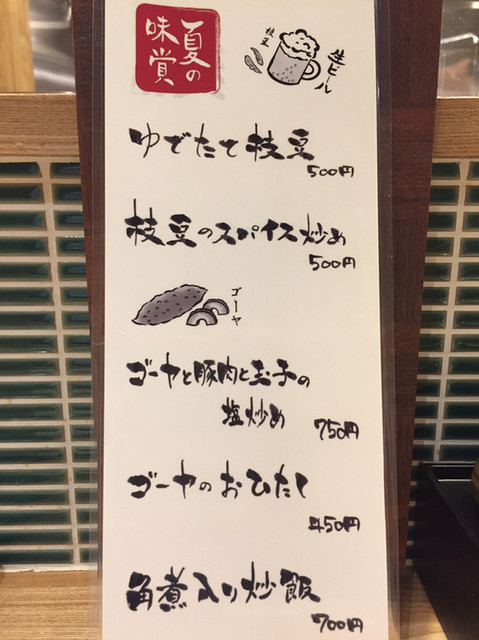 夏の
味覚
枝豆
生ビール
ゆでたて枝豆
500円
枝豆のスパイス炒め
500円
ゴーヤ
ゴーヤと豚肉と玉子の
塩炒め 750円
ゴーヤのおひたし
450円
角煮入り炒飯
700円